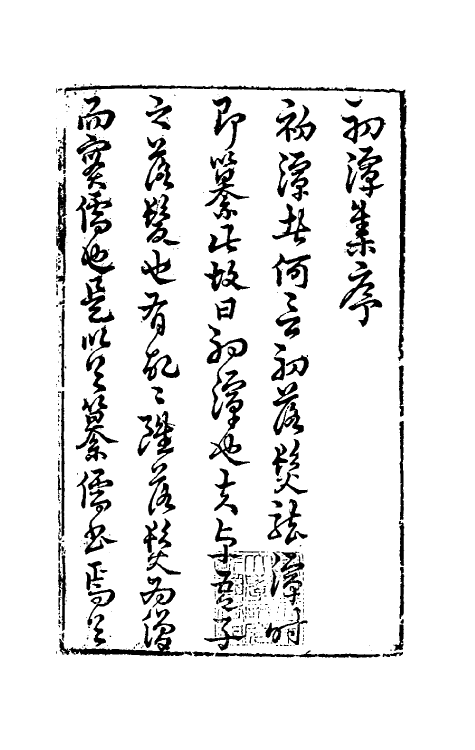 初潭集序
初潭者何言初落髮龍潭時
即纂此故曰初潭也夫卓吾子
之落髮也有故〻雖落髮為僧
而實儒也是以首纂儒書焉首